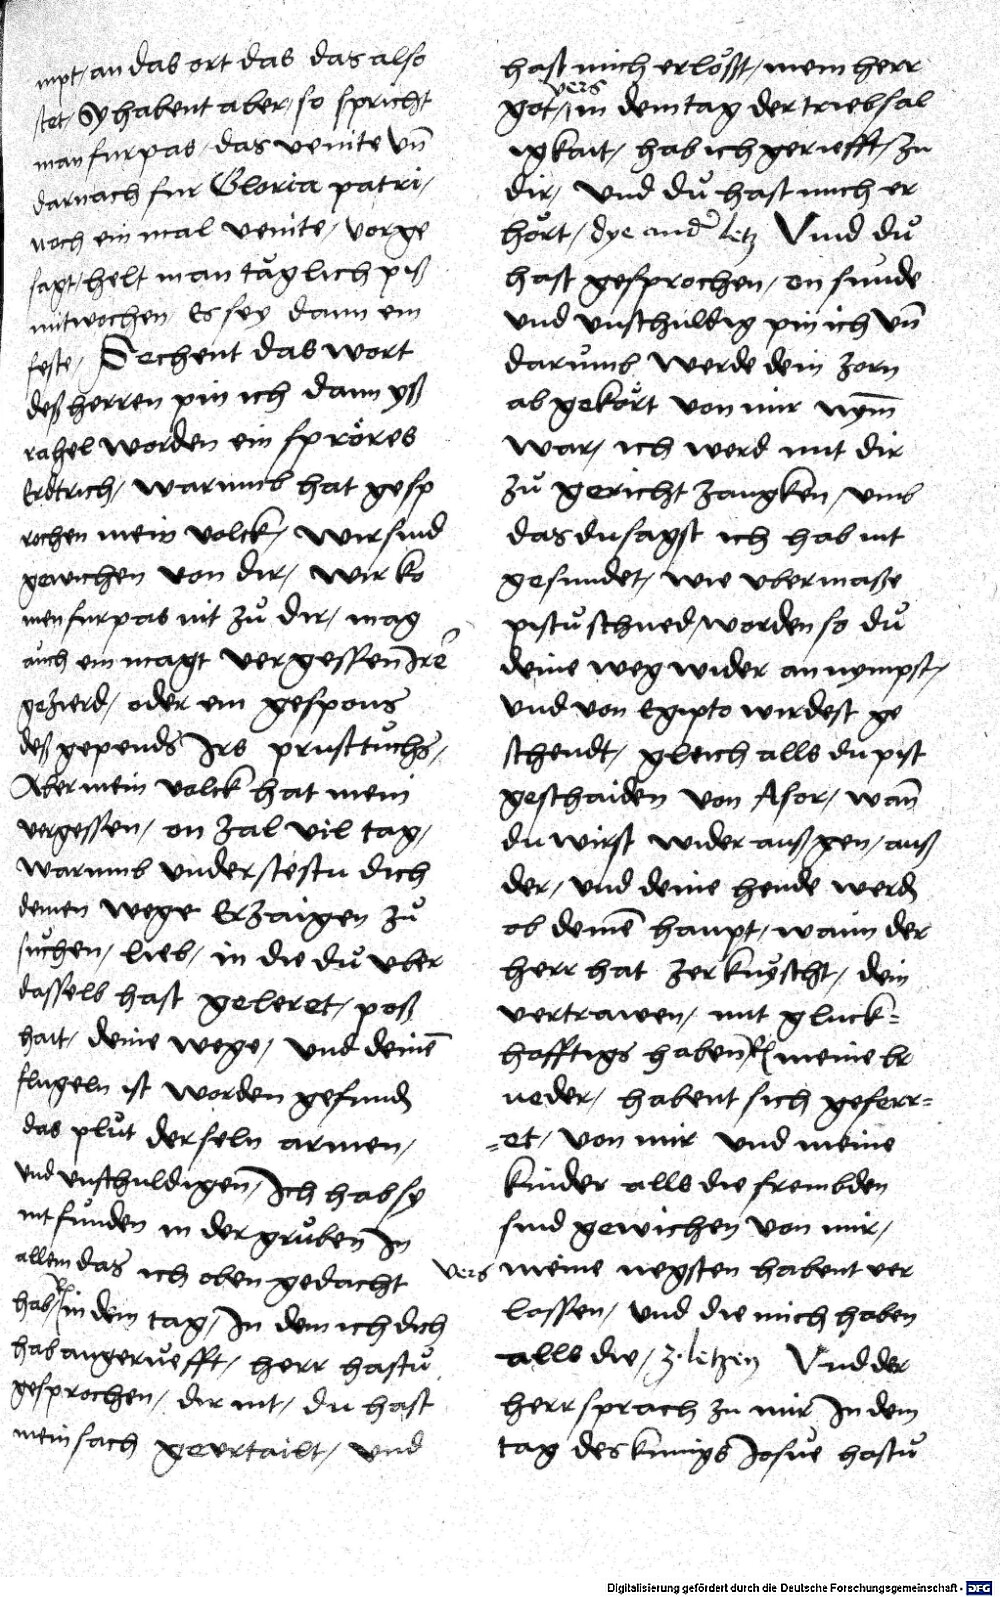 mpt / an das ort das das also
stet / Sy habent aber / so spricht
man furpas / das venite vn̄
darnach fur Gloria patri /
noch ein mal venite / vorge
sagt / helt man täglich piß
mitwochen Es sey dann ein
feste / Sechent das wort
deß herren pin ich dann yß
rahel worden ein spröres
Erdtrich / warumb hat gesp
rochen mein volck / wir sind
gewichen von dir / wir ko
men furpas nit zů dir / mag
auch ein magt vergessen Irē
gezierd / oder ein gespons
deß gepends Irs prusttůchs /
Aber mein volck hat mein
vergessen / on zal vil tag /
warumb understestu dich
deinen wege Erzaigen zů
sůchen / lieb / in die dů uber
dasselb hast geleret / poß
hait / deine wege / und deinē
flugeln ist worden gefunden
das plůt der seln armen /
und unschuldigen / Ich hab sy
nit funden in der grůben In
allem das ich oben gedacht
hab / in dem tag / In dem ich dich
hab angerůefft / herr hastů
gesprochen / dir nit / du hast
mein sach geurtailt / und
hast mich erlößt / mein herr
vers
got / in dem tag der triebsal
igkait / hab ich gerüefft / zu
dir / und dů hast mich er
hört / dye ander letz Und dů
hast gesprochen / on sunde
und unschuldig pin ich vn̄
darumb werde dein zorn
abgekört von mir nym̄
war / ich werd mit dir
zů gericht zangken / umb
das du sagst ich hab nit
gesundet / wie ubermaße
pistů schned / worden so dů
deine weg wider an nympst /
und von Egipto wirdest ge
schendt / gleich alls du pist
geschaiden von Asor / wan̄
du wirst wider auß gen / auß
der / und deine hende werden
ob deinē haupt / wann der
herr hat zerknyscht / dein
vertrawen / nit gluck=
hafftigs haben meine br
ueder / habent sich geferr=
=et / von mir und meine
kinder alls die frembden
sind gewichen von mir /
vers meine negsten habent ver
lassen / und die mich haben
alls die / 3. letzen Und der
herr sprach zu mir In dem
tag des kunigs Josüe hastů
Digitalisierung gefördert durch die Deutsche Forschungsgemeinschaft - DFG